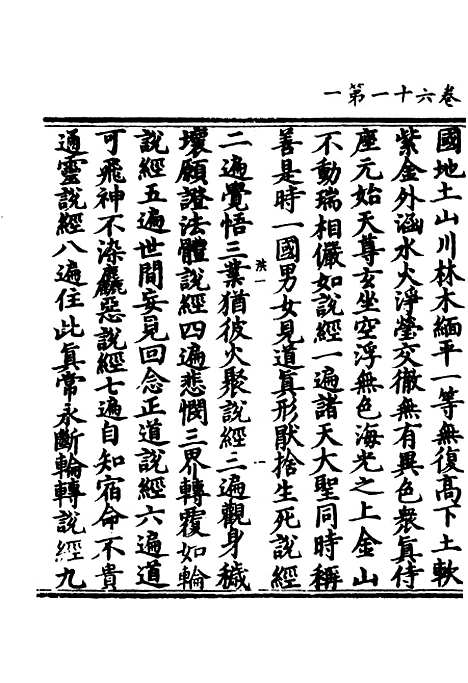 卷六十一第一
國地土山川林木緬平一等無復高下土軟
紫金外涵水火淨瑩交徹無有異色衆眞侍
座元始天尊玄坐空浮無色海光之上金山
不動瑞相儼如說經一遍諸天大聖同時稱
善是時一國男女見道眞形猒捨生死說經
二遍覺悟三業猶彼火聚說經三遍觀身穢
壞願證法體說經四遍悲憫三界轉覆如輪
說經五遍世間妄見回念正道說經六遍道
可飛神不染麤惡說經七遍自知宿命不貴
通靈說經八遍住此眞常永斷輪轉說經九